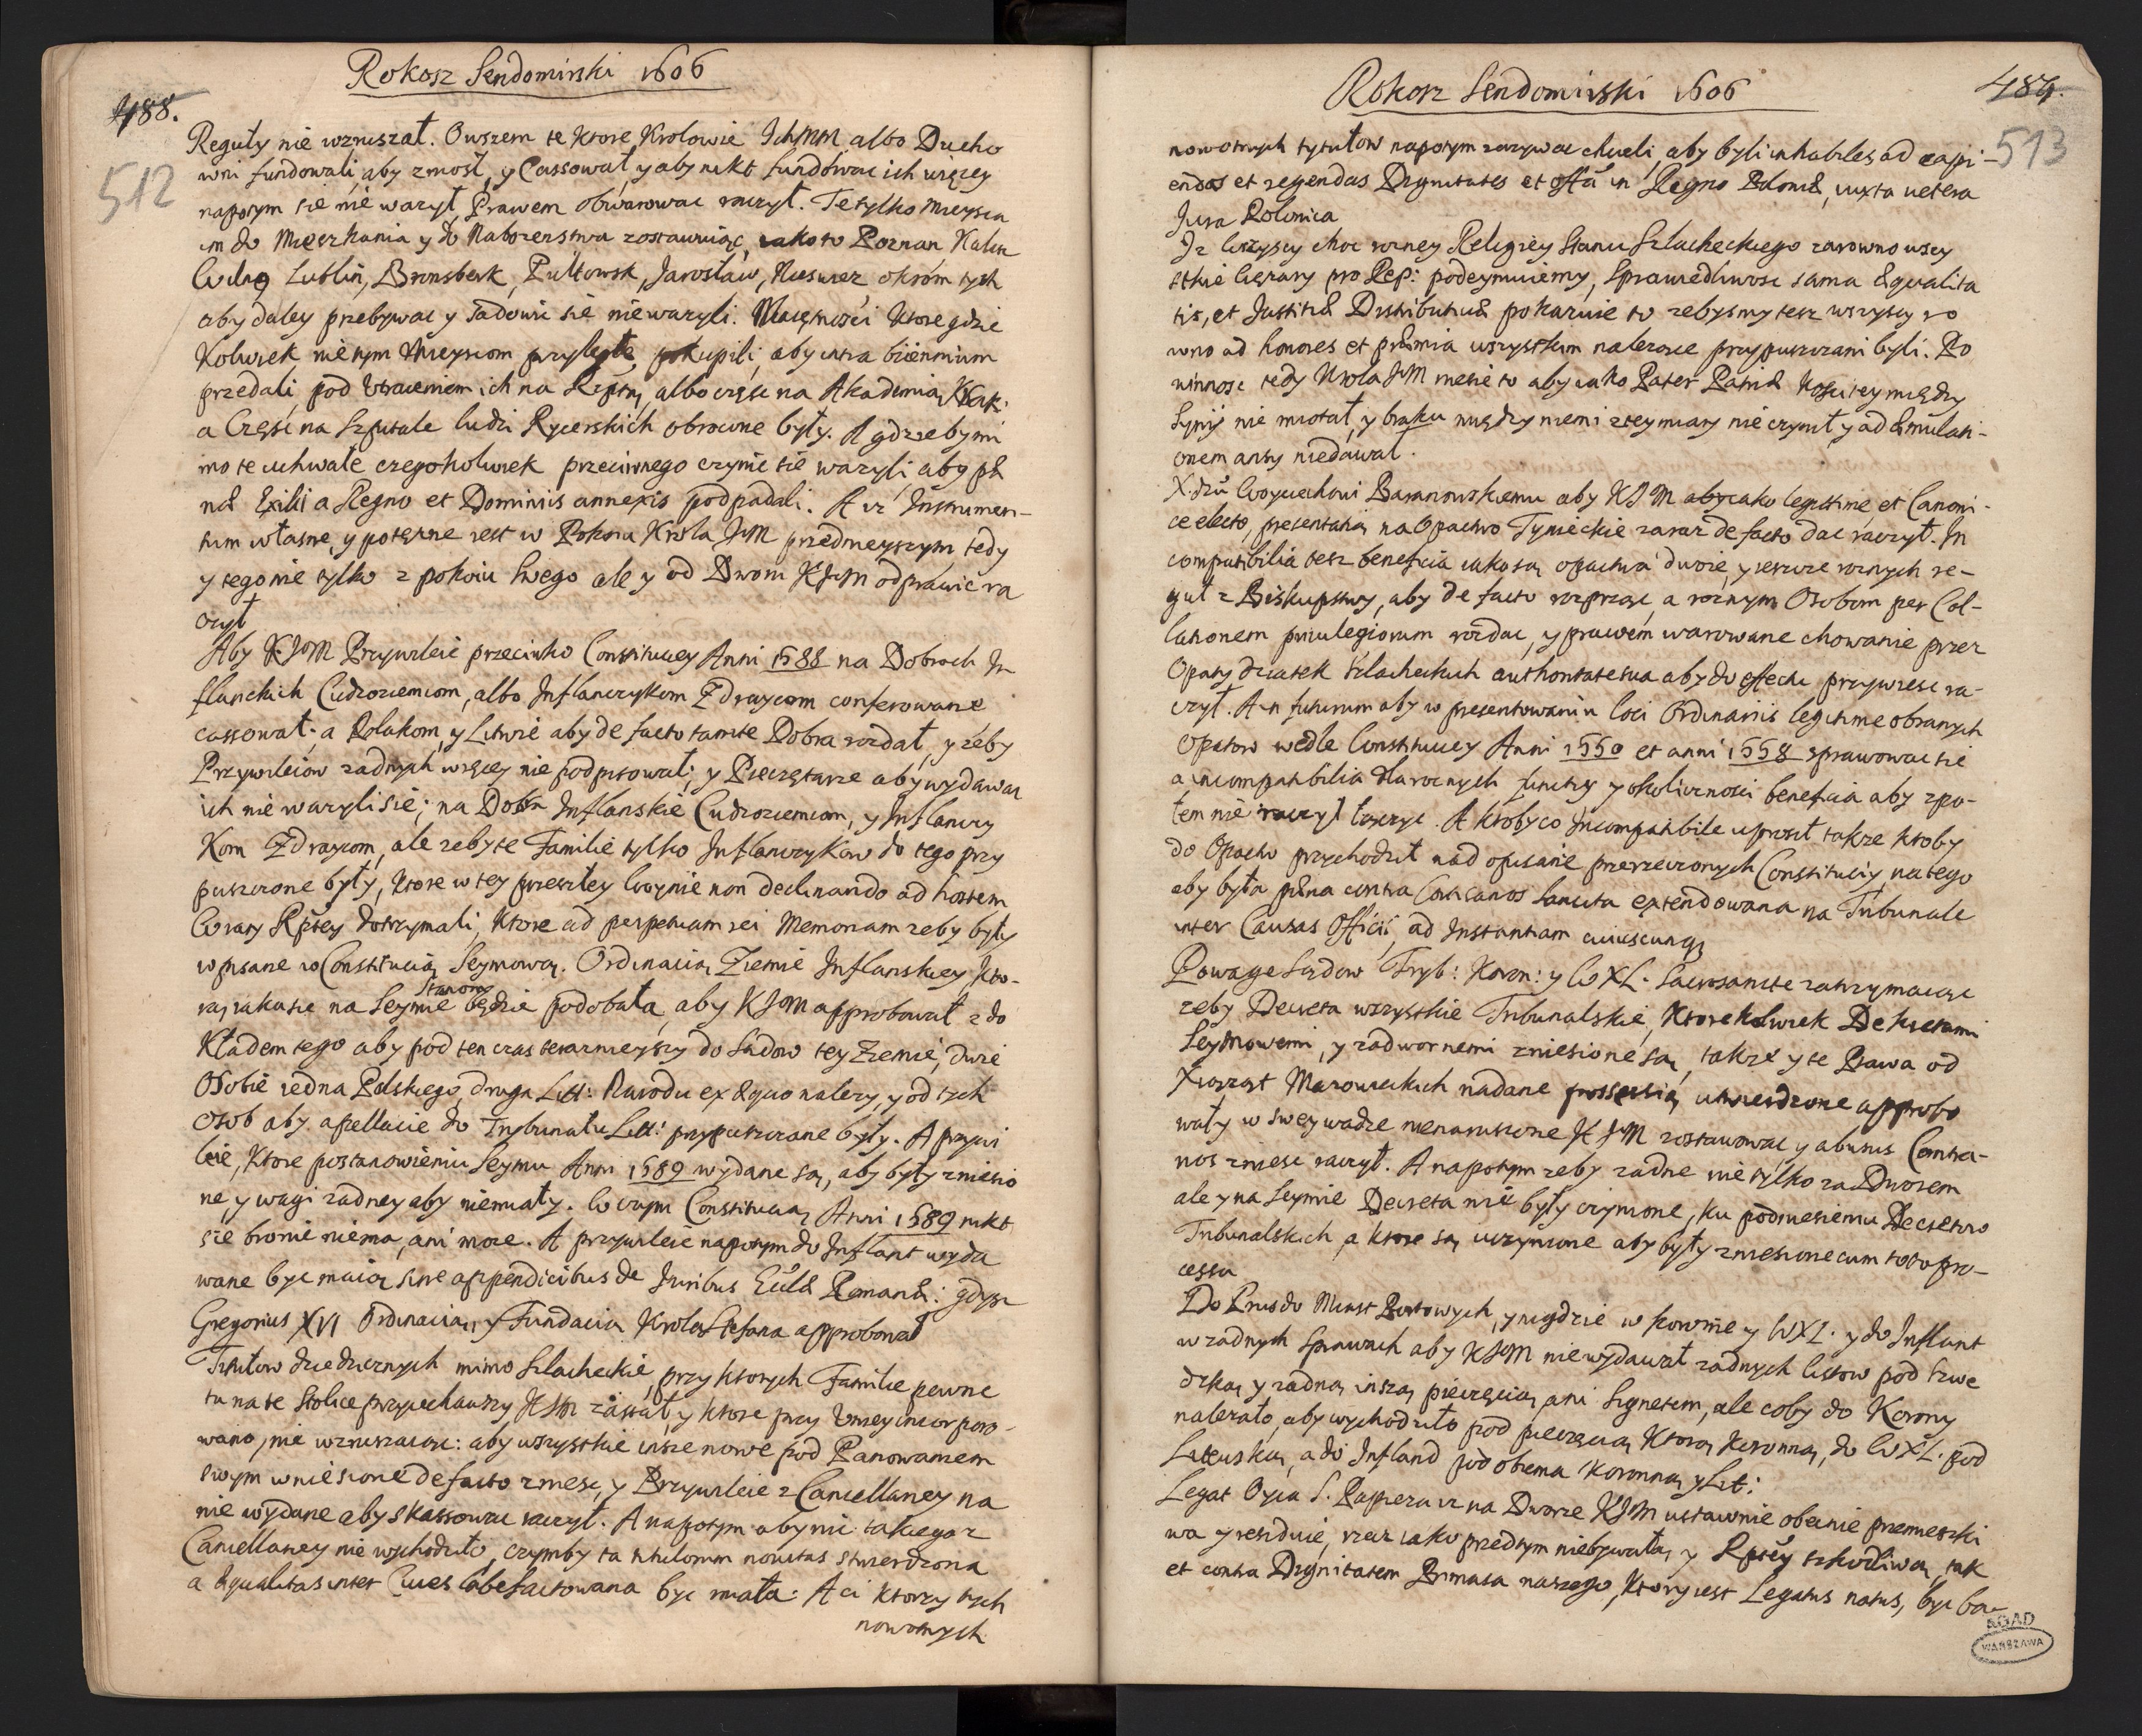 Rokosz Sendomirski 1606
488.
512
Reguły nie wzruszał. Owszem te ktore Krolowie IchMM albo Ducho
wni fundowali, aby zniosł, y Cassował, y aby nikt fundować ich więcey
napotym się nie ważył, Prawem obwarować raczył. Te tylko mieysca
im do Mięszkania y do Nabożenstwa zostawuiąc, iako to Poznan Kalisz
Wilnę Lublin, Brunsberk, Pultowsk, Jarosław, Nieswiez okrom tych
aby daley przebywac y sadowic się nieważyli. Maiętnosci ktore gdzie
Kolwiek nie tym Mieyscom przyległe, pokupili, aby intra biennium
przedali, pod utraceniem ich na Rzptą, albo częsc na Akademią Krak:
a Częsc na Szpitale ludzi Rycerskich obrocone były. A gdzieby mi
mo te uchwałe czegokolwiek przeciwnego czynic się ważyli aby pæ
næ Exilii a Regno et Dominiis annexis podpadali. A iz Instrumen-
tum własne, y potężne iest w Pokoiu Krola JM przedmieyszym, tedy
y tego nie tylko z pokoiu swego ale y od Dworu KJM odprawić ra
czył
Aby KJM Przywileie przeciwko Constitucyey Anni 1588 na Dobrach In
flanckich Cudzoziemcom, albo Inflanczykom Zdraycom conferowane
cassował; a Polakom, y Litwie aby de facto tamte Dobra rozdał, y żeby
Przywileiow zadnych więcey nie podpisował; y Pieczętarze aby wydawac
ich nie wazyli się; na Dobra Inflanskie Cudzoziemcom, y Inflanczy
kom Zdraycom, ale zeby te Familie tylko Inflanczykow do tego przy
puszczone były, ktore w tey przeszłey Woynie non declinando ad hostem
Wiary Rptey dotrzymali; ktore ad perpetuam rei Memoriam zeby były
wpisane w Constitucią Seymową. Ordinacią Ziemie Inflanskiey, kto-
rą iaka się na Seymie Stanom będzie podobała, aby KJM approbował z do
Kładem tego aby pod ten czas teraznieyszy do Sadow tey Ziemie, dwie
Osobie iedna Polskiego, druga Litt: Narodu ex æquo nalezy, y od tych
osob aby apellacie do Trybunału Litt: przypuszczane były. A przywi
leie, ktore postanowieniu Seymu Anni 1589 wydane są, aby były zniesio
ne, y wagi zadney aby niemiały. W czym Constitucią Anni 1589 nikt
się bronic niema, ani moze. A przywileie napotym do Inflant wyda
wane byc maią sine appendicibus de Iuribus Eccliæ Romanæ: gdysz
Gregorius XVI Ordinacią, y Fundacią Krola Stefana approbował
Tytułow dziedzicznych mimo Szlacheckie, przy ktorych Familie pewne
tu na te stolice przyiechawszy KJM zastał, y ktore przy Uniey incorporo-
wano, nie wzruszaiąc: aby wszystkie insze nowe pod Panowaniem
swym wniesione de facto zniesc, y Przywileie z Cancellariey na
nie wydane aby skassowac raczył. A napotym aby nic takiego z
Cancellariey nie wychodziło, czymby ta titulorum novitas stwierdzona
a æqualitas inter Cives labefactowana byc miała: A ci ktorzy tych
nowotnych
Rokosz Sendomirski 1606
489.
513
nowotnych tytułow napotym zazywac chcieli, aby byli inhabiles ad capi-
endas et regendas Dignitates et offa in Regno Poloniæ, iuxta vetera
Jura Polonica
Iz wszyscy choc rozney Religiey Stanu Szlacheckiego zarowno wszy
stkie ciężary pro Rep: podeymuiemy, Sprawiedliwosc sama æqualita
tis, et Justitiæ Distributivæ pokazuie to zebysmy tesz wszyscy ro
wno ad honores et præmia wszystkim nalezące przypuszczani byli. Po
winnosc tedy Krola JM niesie to aby iako Pater Patriæ kosci tey między
Syny nie miotał, y braku między niemi z tey miary nie czynił y ad æmulati-
onem ansy niedawał.
X dzu Woyciechowi Baranowskiemu aby KJM iako legitime, et Canoni-
ce electo, presentatią na Opactwo Tynieckie zaraz de facto dac raczył. In
compatibilia tesz beneficia iako są opactwa dwoie, y ieszcze roznych re-
guł z Biskupstwy, aby de facto rozprząc, a roznym Osobom per Col-
lationem priuilegiorum rozdac, y prawem warowane chowanie przez
Opaty dziatek szlacheckich authoritate sua aby do effectu przywiesc ra-
czył. A in futurum aby w presentowaniu loci Ordinariis legitime obranych
Opatow wedle Constitucyey Anni 1550 et anni 1558 sprawowac się
a incompatibilia dla roznych functiy y okolicznosci beneficia aby zpo-
tem nie raczył łączyc. A ktoby co Incompatibile uprosił także ktoby
do Opactw przychodził nad opisanie przerzeczonych Constituciy, na tego
aby była pæna contra Cortisanos sancita extendowana na Tribunale
inter Causas Officii, ad Instantiam cuiuscunq
Powage Sądow Tryb: Koron: y WXL. Sacrosancte zatrzymaiąc
zeby Decreta wszystkie Tribunalskie, ktorekolwiek Dekretami
Seymowemi, y zadwornemi zniesione są, także y te Prawa od
Xiążąt Mazowieckich nadane possessią utwierdzone approbo
wały w swey wadze nienaruszone KJM zostawowac y abusus Contra-
nos zniesc raczył. A napotym zeby zadne nie tylko za Dworem
ale y na Seymie Decreta nie były czynione, ku podniesieniu Decretow
Tribunalskich, a ktore są uczynione aby były zniesione cum toto pro-
cessu
Do Prus do Miast Portowych, y nigdzie w Koronie y WXL. y do Inflant
w zadnych Sprawach aby KJM nie wydawał zadnych listow pod Szwe
dzką y zadną inszą pieczęcią, ani Signetem, ale coby do Korony
nalezało, aby wychodziło pod pieczęcią ktorą Koronną, do WXL. pod
Litewską, a do Infland pod obiema Koronną y Lit:
Legat Oyca S. Papieza iz na Dworze KJM ustawnie obecnie przemieszki
wa y residuie, rzecz iako przedtym niebywałą, y Rptey szkodliwą, tak
et contra Dignitatem Primasa naszego, ktory iest Legatus natus, byc ba-
AGAD
WARSZAWA